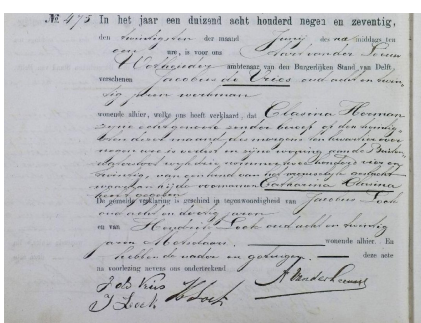 №. 475. In het jaar een duizend acht honderd negen en zeventig,
den twintigsten der maand Junij des na middags ten
een ure, is voor ons van der Leeuw
Wethouder ambtenaar van den Burgerlijken Stand van Delft,
verschenen Jacobus de Vries oud acht en twin
tig jaren werkman
wonende alhier, welke ons heeft verklaard, dat Clasina Herman
zijne echtgenoote zonder beroep op den
dezer maand des morgens ten kwartier over
ure is bevallen in zijne woning aan de
nummer twee honderd vier en
twintig, van een kind van het vrouwelijk geslacht
waaraan hij de voornamen Catharina Clasina
heeft gegeven
De gemelde verklaring is geschied in tegenwoordigheid van Jacobus Loch
oud acht en dertig jaren
en van Hendrik Loch oud acht en twintig
jaren Metselaars wonende alhier. En
hebben de vader en getuigen deze acte
na voorlezing nevens ons onderteekend
J de Vries
J Loch H Loch A van der Leeuw